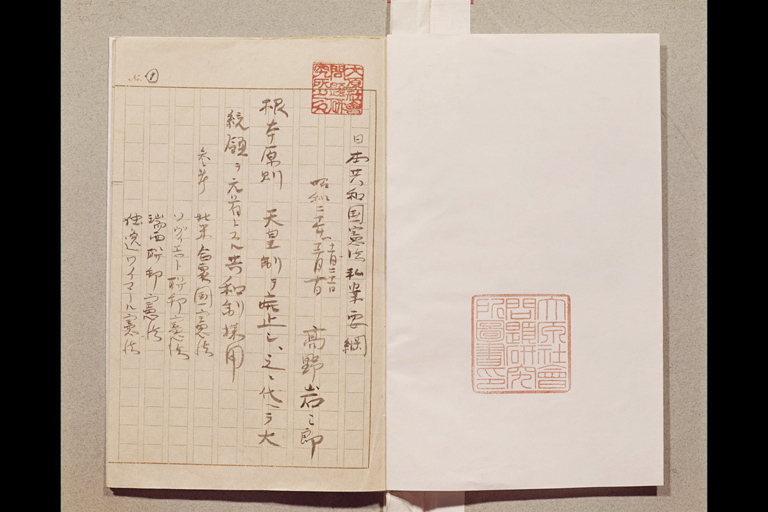 大原社会問題研究所図書印
日本共和国憲法私案要綱
高野岩三郎
根本原則 天皇制ヲ廃止シ、之ニ代ヘテ大
統領ヲ元首トスル共和制採用
参考
北米合衆国憲法
ソヴィエト聯邦憲法
瑞西聯邦憲法
独逸ワイマール憲法